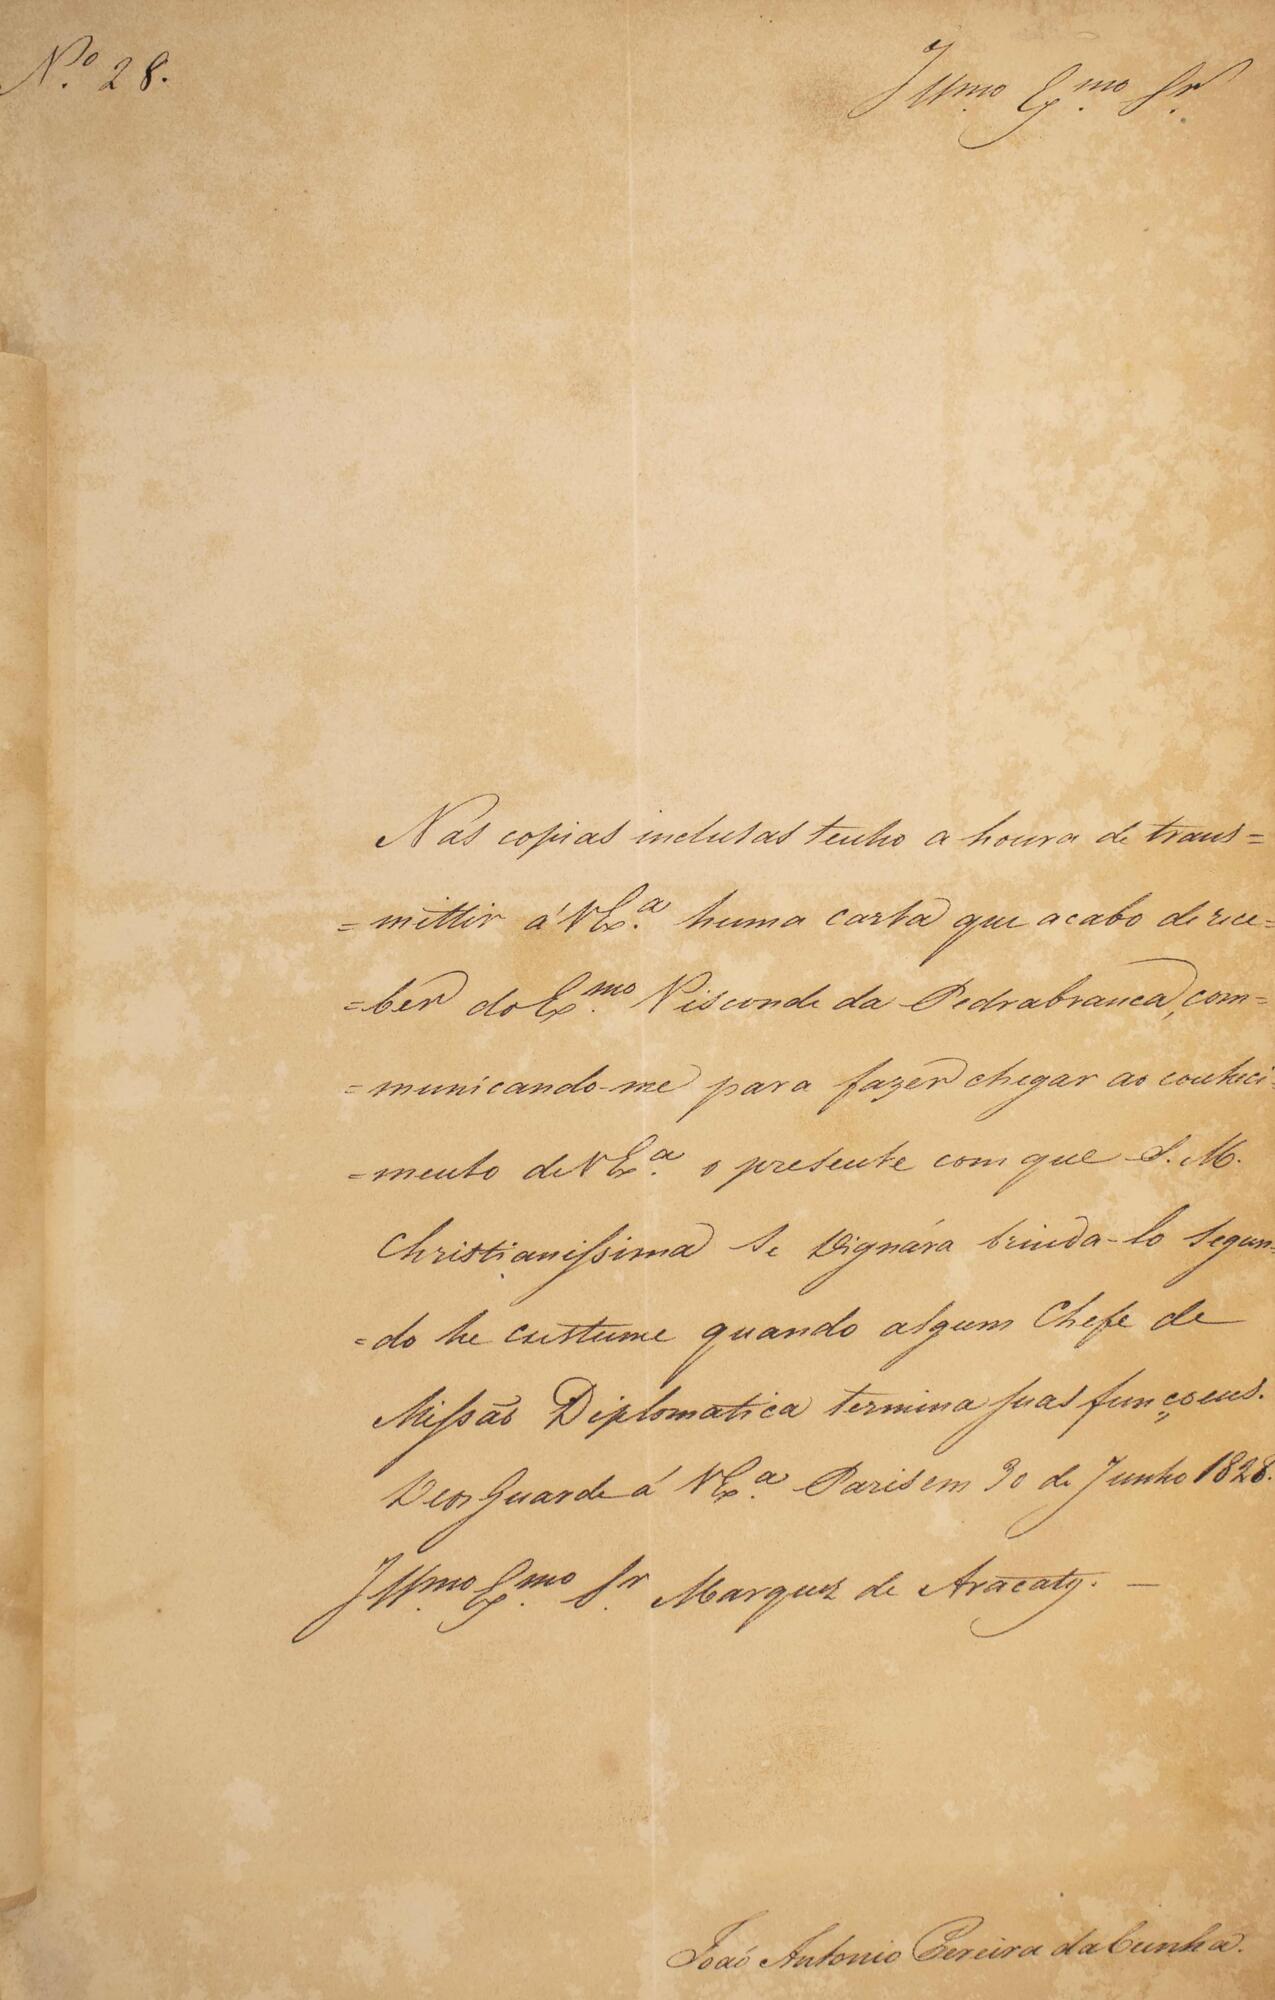 N.º 28.
Ill.mo Ex.mo Sr.
Nas copias inclusas tenho a honra de trans=
=mittir á V Ex.ª huma carta que acabo de rece=
=ber do Ex.mo Visconde da Pedrabranca, com=
=municando-me para fazer chegar ao conheci=
=mento de V Ex.ª o presente com que S. M.
Christianissima se Dignára brinda-lo segun=
=do he custume quando algum Chefe de
Missão Diplomatica termina suas funçoens.
Deos Guarde á V Ex.ª Paris em 30 de Junho 1828.
Ill.mo Ex.mo Sr. Marquez de Aracaty. —
João Antonio Pereira da Cunha.